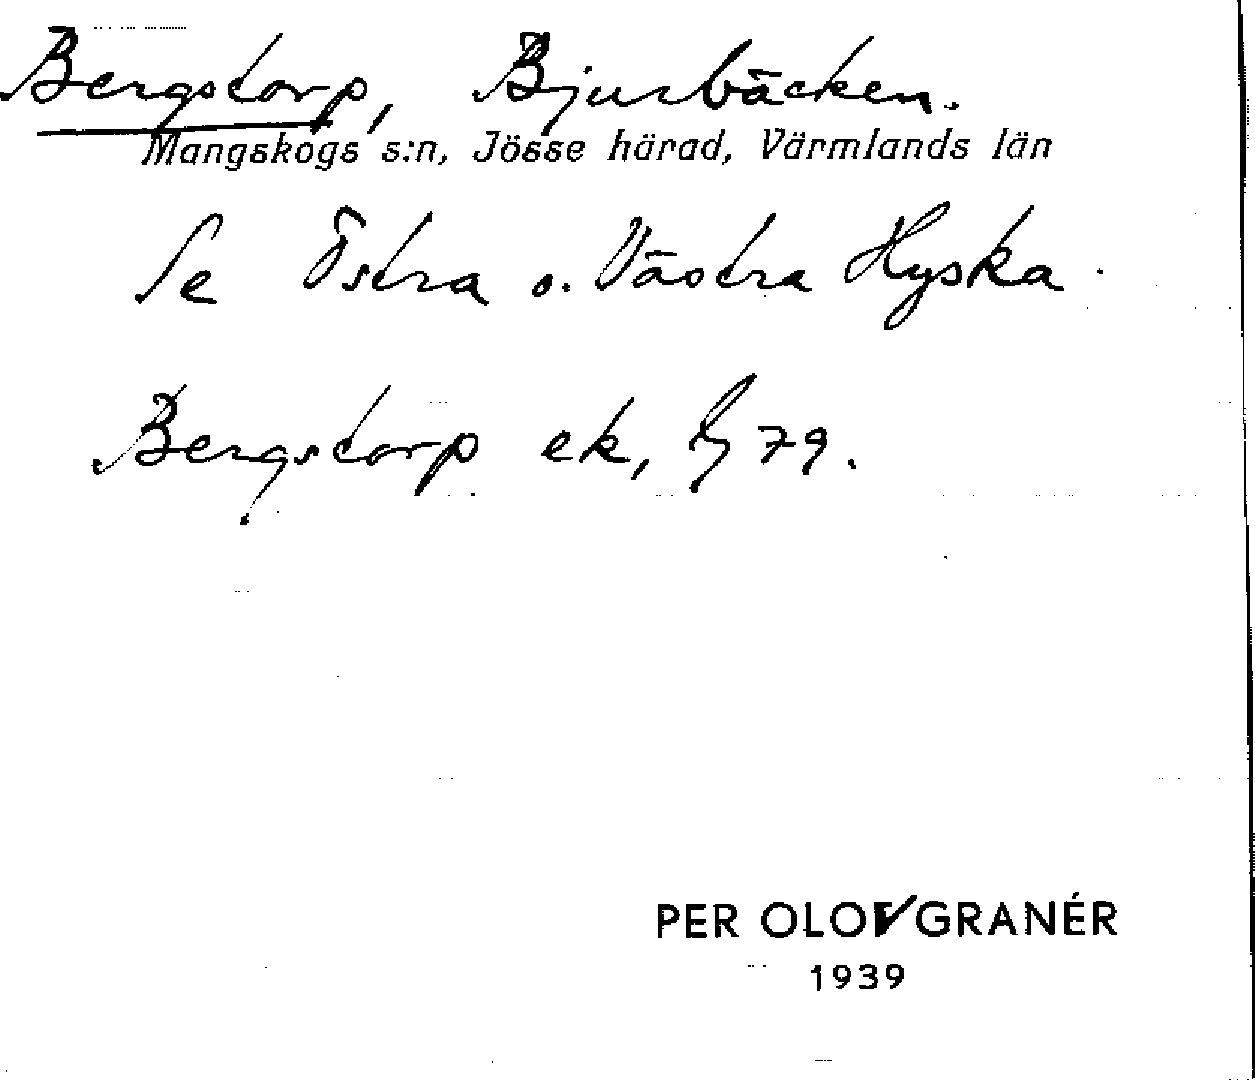 Bergstorp, Bjurbäcken.
Mangskogs s:n, Jösse härad, Värmlands län
Se Östra o. Västra Hyska.
Bergstorp ek, 79.
PER OLOV GRANÉR
1939